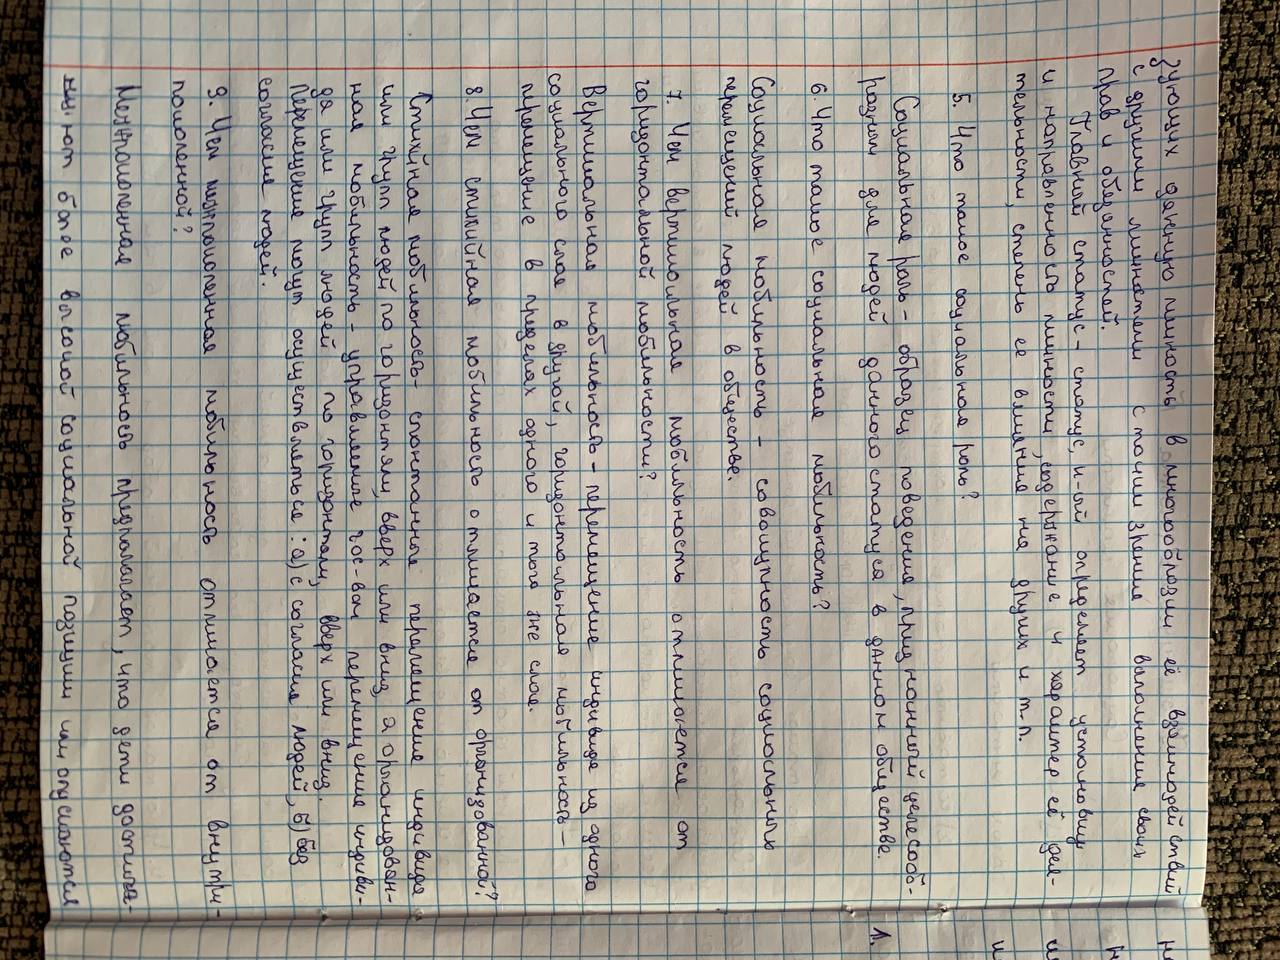 зующих данную личность в многообразии её взаимодействий
с другими личностями с точки зрения выполнения своих
прав и обязанностей.
Главный статус - статус, к-ый определяет установку
и направленность личности, содержание и характер её дея-
тельности, степень её влияния на других и т.п.
5. Что такое социальная роль?
Социальная роль - образец поведения, признанный целесооб-
разным для людей данного статуса в данном обществе.
6. Что такое социальная мобильность?
Социальная мобильность - совокупность социальных
перемещений людей в обществе.
7. Чем вертикальная мобильность отличается от
горизонтальной мобильности?
Вертикальная мобильность - перемещение индивида из одного
социального слоя в другой, горизонтальная мобильность -
перемещение в пределах одного и того же слоя.
8. Чем стихийная мобильность отличается от организованной?
Стихийная мобильность - спонтанные перемещения индивида
или групп людей по горизонтали, вверх или вниз, а организован-
ная мобильность - управляемые гос-вом перемещения индиви-
да или групп людей по горизонтали, вверх или вниз.
Перемещения могут осуществляться: а) с согласия людей, б) без
согласия людей.
9. Чем межпоколенная мобильность отличается от внутри-
поколенной?
Межпоколенная мобильность предполагает, что дети достига-
ют более высокой социальной позиции или опускаются
1.